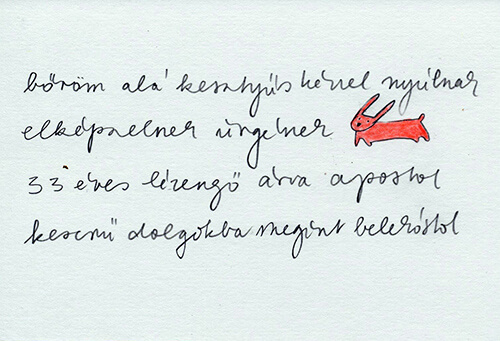 bőröm alá kesztyűs kézzel nyúlnak
elképzelnek ürgének
33 éves lézengő árva apostol
keserű dolgokba megint belekóstol